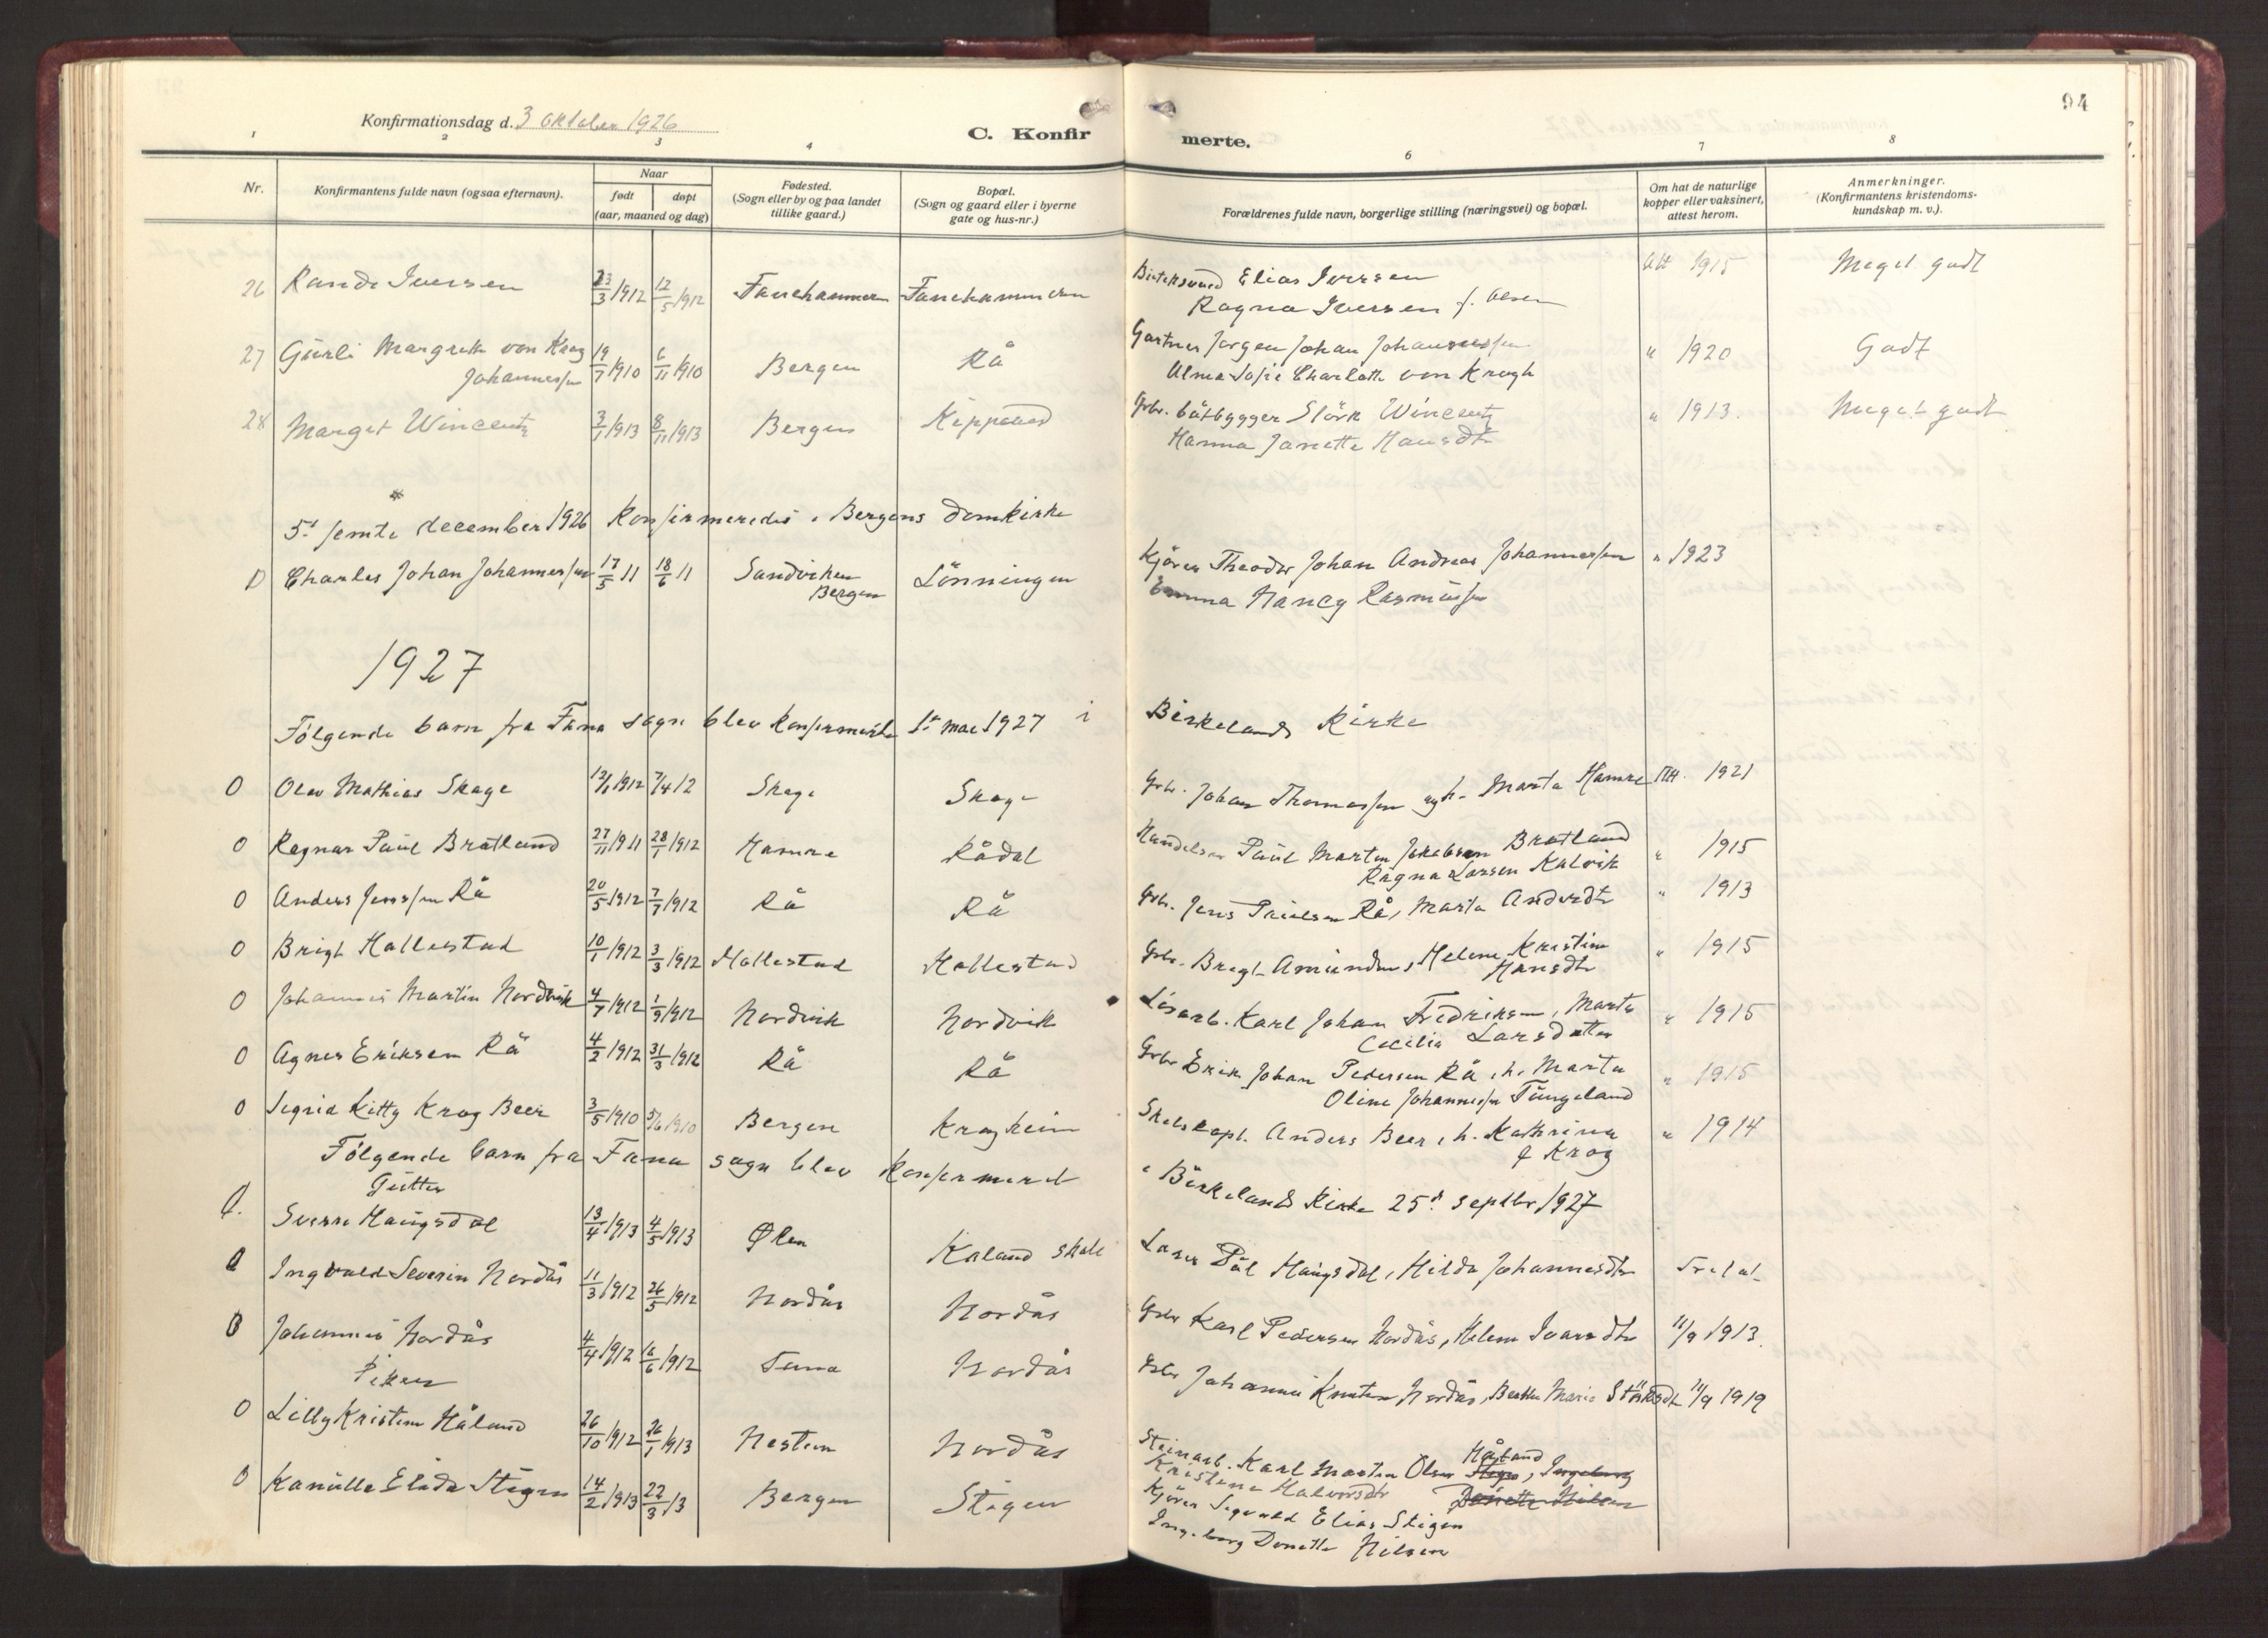 94
Konfirmationsdag d. 3 Oktober 1926
C. Konfir merte.
1 2 3 4 6 7 8
Nr.
Konfirmantens fulde navn (ogsaa efternavn).
Naar
født døpt
(aar, maaned og dag)
Fødested.
(Sogn eller by og paa landet
tillike gaard.)
Bopæl.
(Sogn og gaard eller i byerne
gate og hus-nr.)
Forældrenes fulde navn, borgerlige stilling (næringsvei) og bopæl.
Om hat de naturlige
kopper eller vaksinert,
attest herom.
Anmerkninger.
(Konfirmantens kristendoms-
kundskap m. v.).
26 Randi Iversen 23/3 1912 12/5 1912 Fanehammeren Fanehammeren Elias Iversen Att 1915 Meget godt
Ragna Iversen f. Olsen
27 Gürli Margrethe von Krog 19/7 1910 6/11 1910 Bergen Rå Gartner Jørgen Johan Johannessen " 1920 Godt
Johannessen Alma Sofie Charlotte von Krogh
28 Margit Wincentz 3/1 1913 8/11 1913 Bergen Kippaased Grbr. båtbygger Störk Wincentz " 1913. Meget godt
Hanna Janette Hansdtr
5te femte december 1926 Konfirmeredes i Bergens Domkirke
D Charles Johan Johannessen 17/5 11 18/6 11 Sandviken Lönningen Kjörer Theodor Johan Andreas Johannessen " 1923
Bergen Emma Nancy Rasmüssen
1927
Fölgende barn fra Fana sogn blev konfirmerte 1ste mai 1927 i Birkelands Kirke
O Olav Mathias Skage 13/1 1912 7/4 12 Skage Skage Grbr. Johan Thomassen og h. Marta Hamre Att. 1921
O Ragnar Paul Bratland 27/11 1911 28/1 1912 Hamre Rådal Handelsm Paul Martin Jakobsen Bratland " 1915
Ragna Larsen Kalvik
O Anders Jenssen Rå 20/5 1912 7/7 1912 Rå Rå Grbr. Jens Paulsen Rå, Marta Andersdtr " 1913
O Brigt Hallestad 10/1 1912 3/3 1912 Hallestad Hallestad Grbr. Brigt Amundsen, Helene Kristine " 1915
Hansdtr
O Johannes Martin Nordvik 4/7 1912 1/9 1912 Nordvik Nordvik Lösarb. Karl Johan Fredriksen, Marta " 1915
Cecilia Larsdatter
O Agnes Eriksen Rå 4/2 1912 31/3 1912 Rå Rå Grbr Erik Johan Pedersen Rå, h. Marta " 1915
Oline Johannessen Tüngeland
O Sigrid Kitty Krog Beer 3/5 1910 5/6 1910 Bergen Kragheim Anders Beer, h. Kathrina " 1914
f Krog
Fölgende barn fra Fana sogn blev Konfirmeret i Birkelands Kirke 25de septbr 1927
Gutter
O. Sverre Haugsdal 13/4 1913 4/5 1913 Ølen Kaland skole Lærer Pål Haugsdal, Hilda Johannesdtr
O Ingvald Severin Nordås 11/3 1912 26/5 1912 Nordås Nordås Grbr Karl Pedersen Nordås, Helene Ivarsdtr 11/9 1913.
O Johannes Nordås 4/4 1912 16/6 1912 Fana Nordås Grbr Johannes Knutsen Nordås, Berthe Marie Störksdtr 11/9 1919
Piker
O Lilly Kristine Håland 26/10 1912 26/1 1913 Nestun Nordås Steinarb. Karl Martin Olsen Håland, Ingeborg
Kristine Halvorsdtr Donette Nilsen
O Kamille Elida Stigen 14/2 1913 22/3 13 Bergen Stigen Kjörer Sigvald Elias Stigen
Ingeborg Donette Nilsen